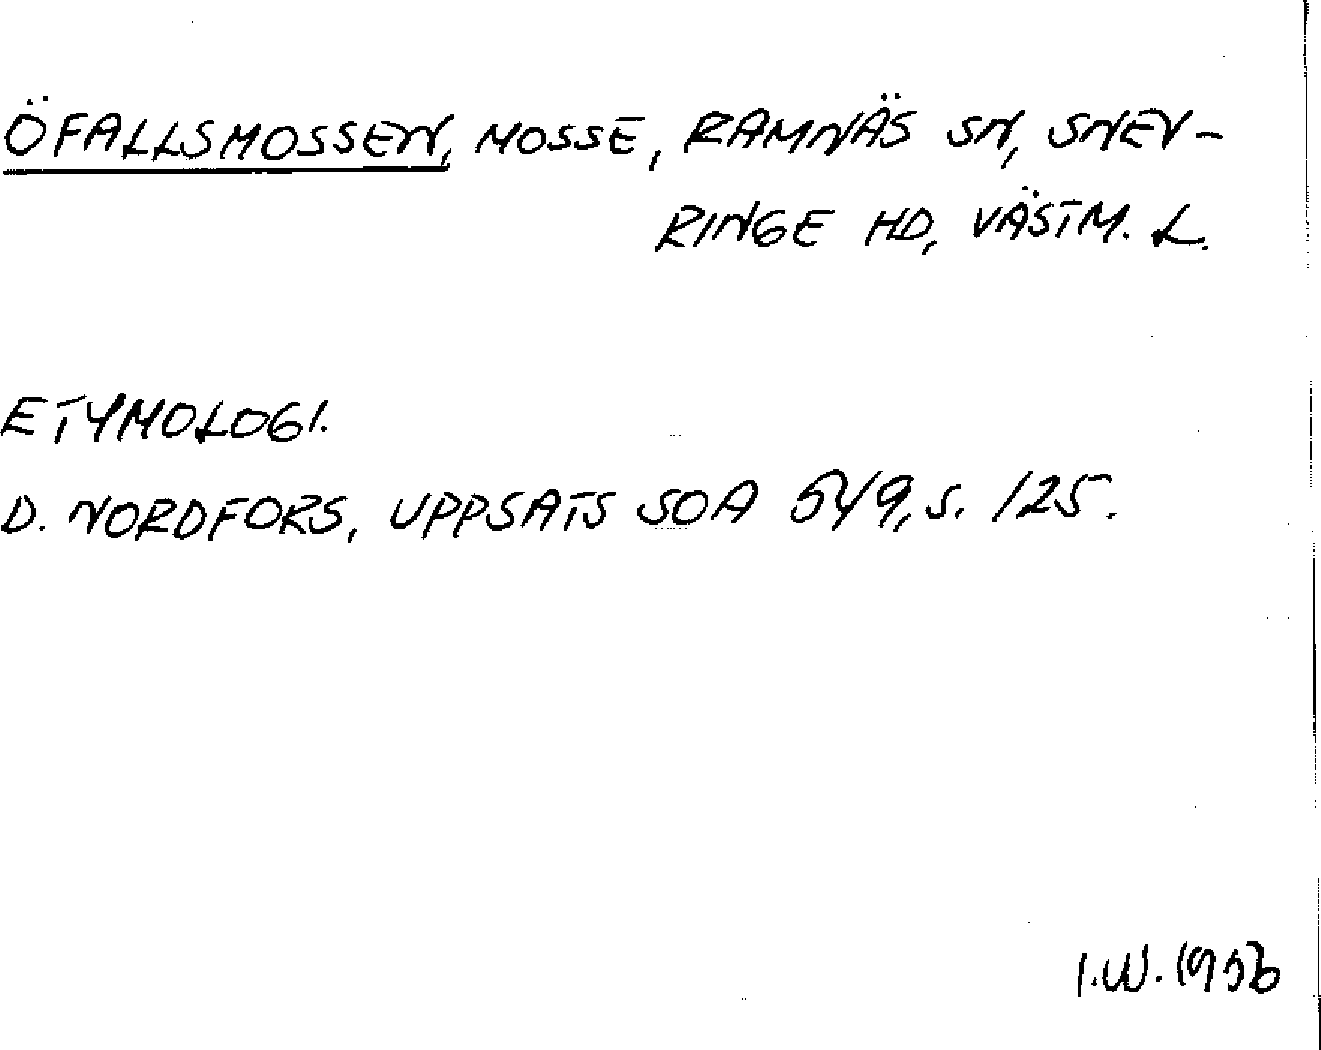 ÖFALLSMOSSEN, MOSSE, RAMNÄS SN, SNEV-
RINGE HD, VÄSTM. L.
ETYMOLOGI.
D. NORDFORS, UPPSATS SOA 549, S. 125.
I.W.